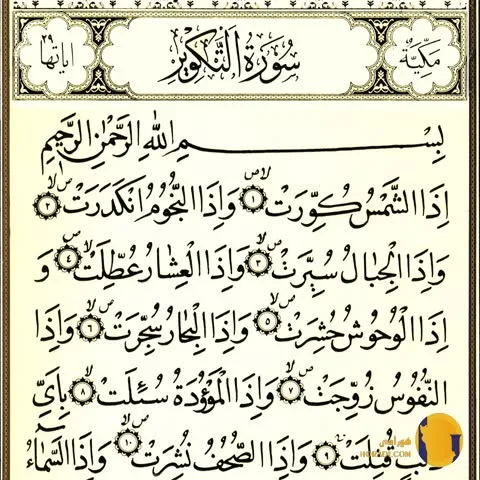 مَكِّيَّةٌ سُورَةُ التَّكْوِيرِ اٰيَاتُهَا ٢٩
بِسْمِ اللّٰهِ الرَّحْمٰنِ الرَّحِيمِ
اِذَا الشَّمْسُ كُوِّرَتْ ۙ ١ وَاِذَا النُّجُومُ انْكَدَرَتْ ۙ ٢
وَاِذَا الْجِبَالُ سُيِّرَتْ ۙ ٣ وَاِذَا الْعِشَارُ عُطِّلَتْ ۙ ٤ وَ
اِذَا الْوُحُوشُ حُشِرَتْ ۙ ٥ وَاِذَا الْبِحَارُ سُجِّرَتْ ۙ ٦ وَاِذَا
النُّفُوسُ زُوِّجَتْ ۙ ٧ وَاِذَا الْمَوْؤُدَةُ سُئِلَتْ ۙ ٨ بِاَيِّ
قُتِلَتْ ۚ ٩ وَاِذَا الصُّحُفُ نُشِرَتْ ۙ ١٠ وَاِذَا السَّمَاءُ